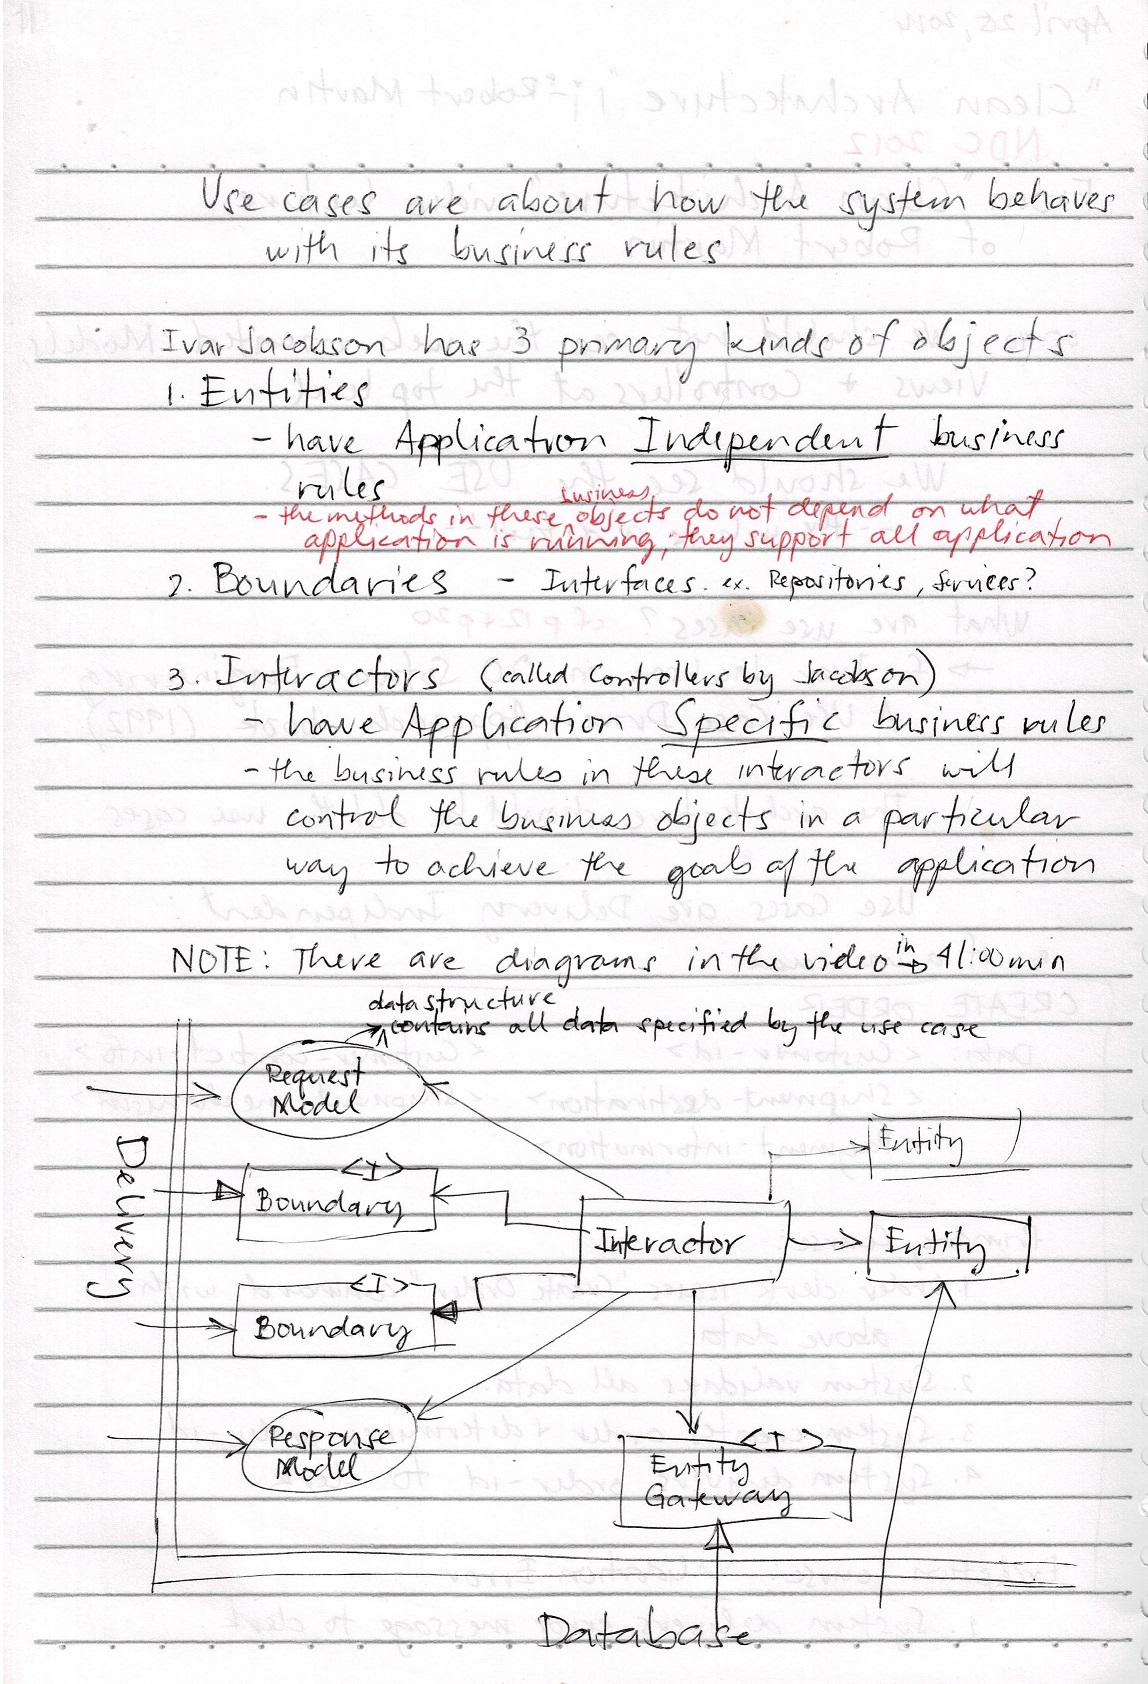 Use cases are about how the system behaves
with its business rules
Ivar Jacobson has 3 primary kinds of objects
1. Entities
- have Application Independent business
rules
- the methods in these business objects do not depend on what
application is running; they support all application
2. Boundaries - Interfaces. ex. Repositories, Services?
3. Interactors (called Controllers by Jacobson)
- have Application Specific business rules
- the business rules in these interactors will
control the business objects in a particular
way to achieve the goals of the application
NOTE: There are diagrams in the video in → 41:00 min
data structure
contains all data specified by the use case
Request
Model
Entity
Delivery
<I>
Boundary
Interactor
Entity
<I>
Boundary
Response
Model
<I>
Entity
Gateway
Database